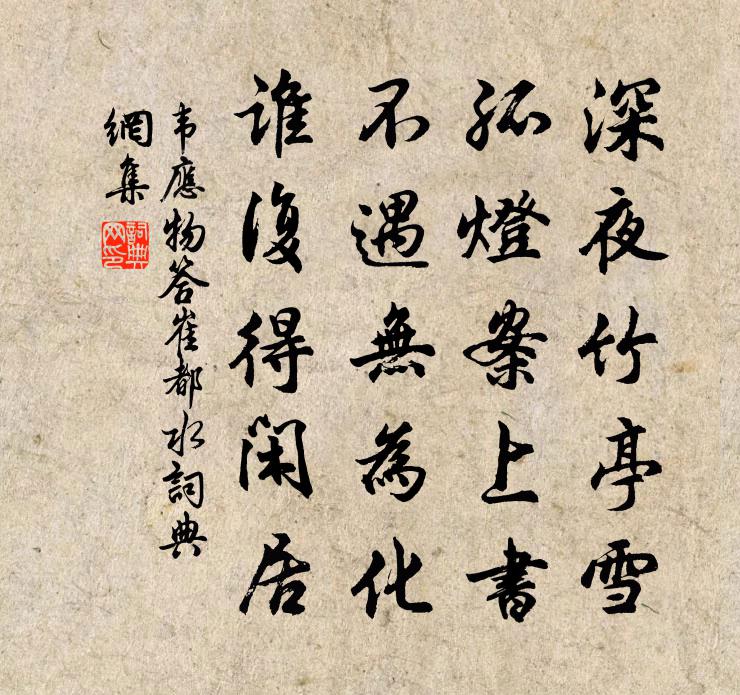 深夜竹亭雪
孤燈案上書
不遇無為化
谁復得閑居
韦應物答崔都水詞典
網集
詞典
网印